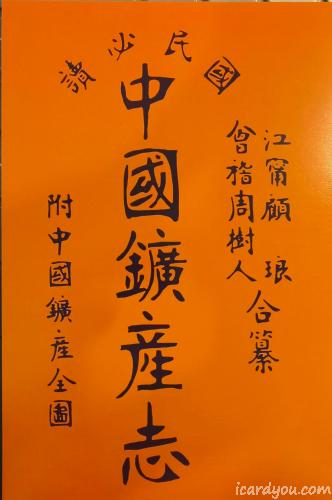 國民必讀
江甯顧琅
會稽周樹人
合纂
中國鑛產志
附中國鑛產全圖
icardyou.com